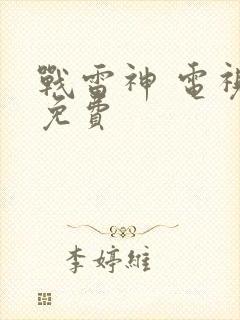 戰雷神 電視
免費
李婷維